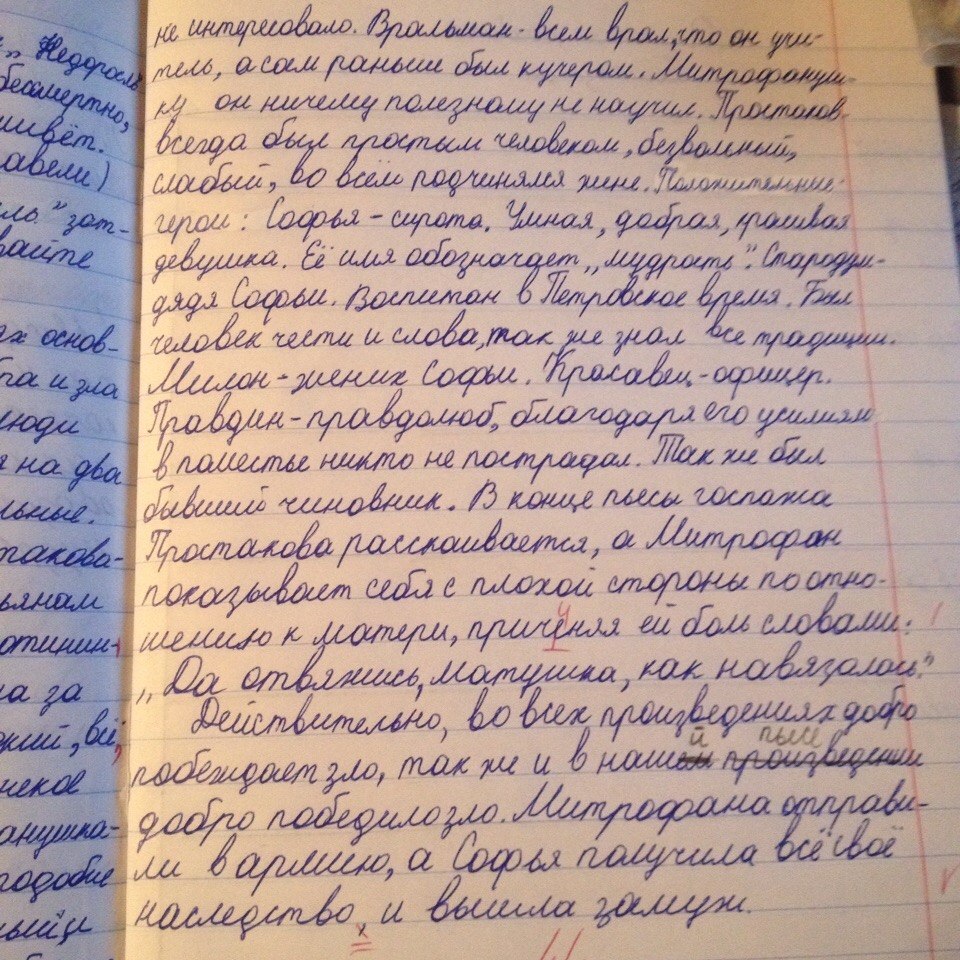 „ Недоросль
бессмертно,
живёт.
"зат-
вайте
ях основ-
ра и зла
люди
я на два
льные.
такова-
ьянам
отинин-
на за
дкий, всё,
анушка-
подобие
не интересовало. Вральман - всем врал, что он учи-
тель, а сам раньше был кучером. Митрофануш-
ку он ничему полезному не научил. Простаков-
всегда был простым человеком, безвольный,
слабый, во всём подчинялся жене. Положительные
герои: Софья - сирота. Умная, добрая, красивая
девушка. Её имя обозначает „мудрость". Стародум-
дядя Софьи. Воспитан в Петровское время. Был
человек чести и слова, так же знал все традиции.
Милон - жених Софьи. Красавец - офицер.
Правдин - правдолюб, благодаря его усилиям
в поместье никто не пострадал. Так же был
бывший чиновник. В конце пьесы госпожа
Простакова расскаивается, а Митрофан
показывает себя с плохой стороны по отно-
шению к матери, причиняя ей боль словами:
„Да отвяжись, матушка, как навязалась."
Действительно, во всех произведениях добро
побеждает зло, так же и в нашей пьесе
добро победило зло. Митрофана отправи-
ли в армию, а Софья получила всё своё
наследство, и вышла замуж.